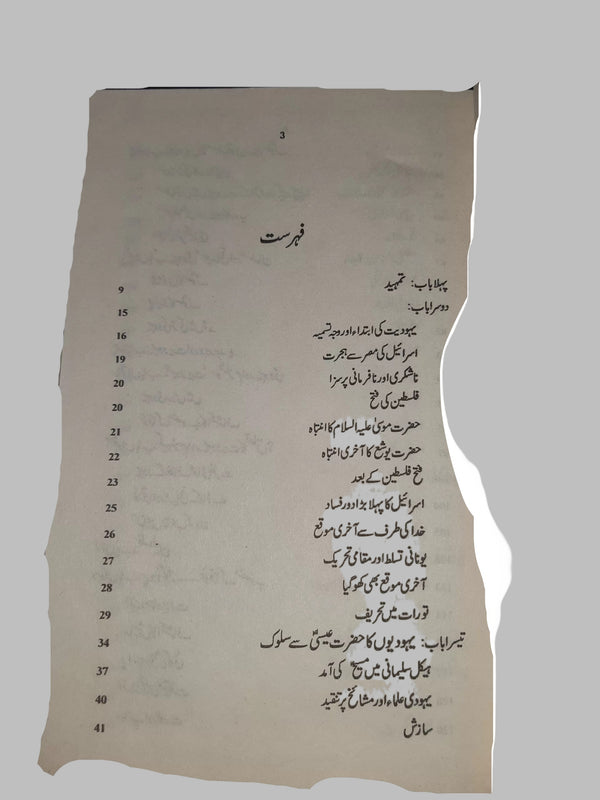 3
فہرست
پہلا باب: تمہید 9
دوسرا باب: 15
یہودیت کی ابتداء اور وجہ تسمیہ 16
اسرائیل کی مصر سے ہجرت 19
ناشکری اور نافرمانی پر سزا 20
فلسطین کی فتح 20
حضرت موسیٰ علیہ السلام کا انتباہ 21
حضرت یوشع کا آخری انتباہ 22
فتح فلسطین کے بعد 23
اسرائیل کا پہلا بڑا دور فساد 25
خدا کی طرف سے آخری موقع 26
یونانی تسلط اور مقامی تحریک 27
آخری موقع بھی کھو گیا 28
تورات میں تحریف 29
تیسرا باب: یہودیوں کا حضرت عیسیٰؑ سے سلوک 34
ہیکل سلیمانی میں مسیحؑ کی آمد 37
یہودی علماء اور مشائخ پر تنقید 40
سازش 41